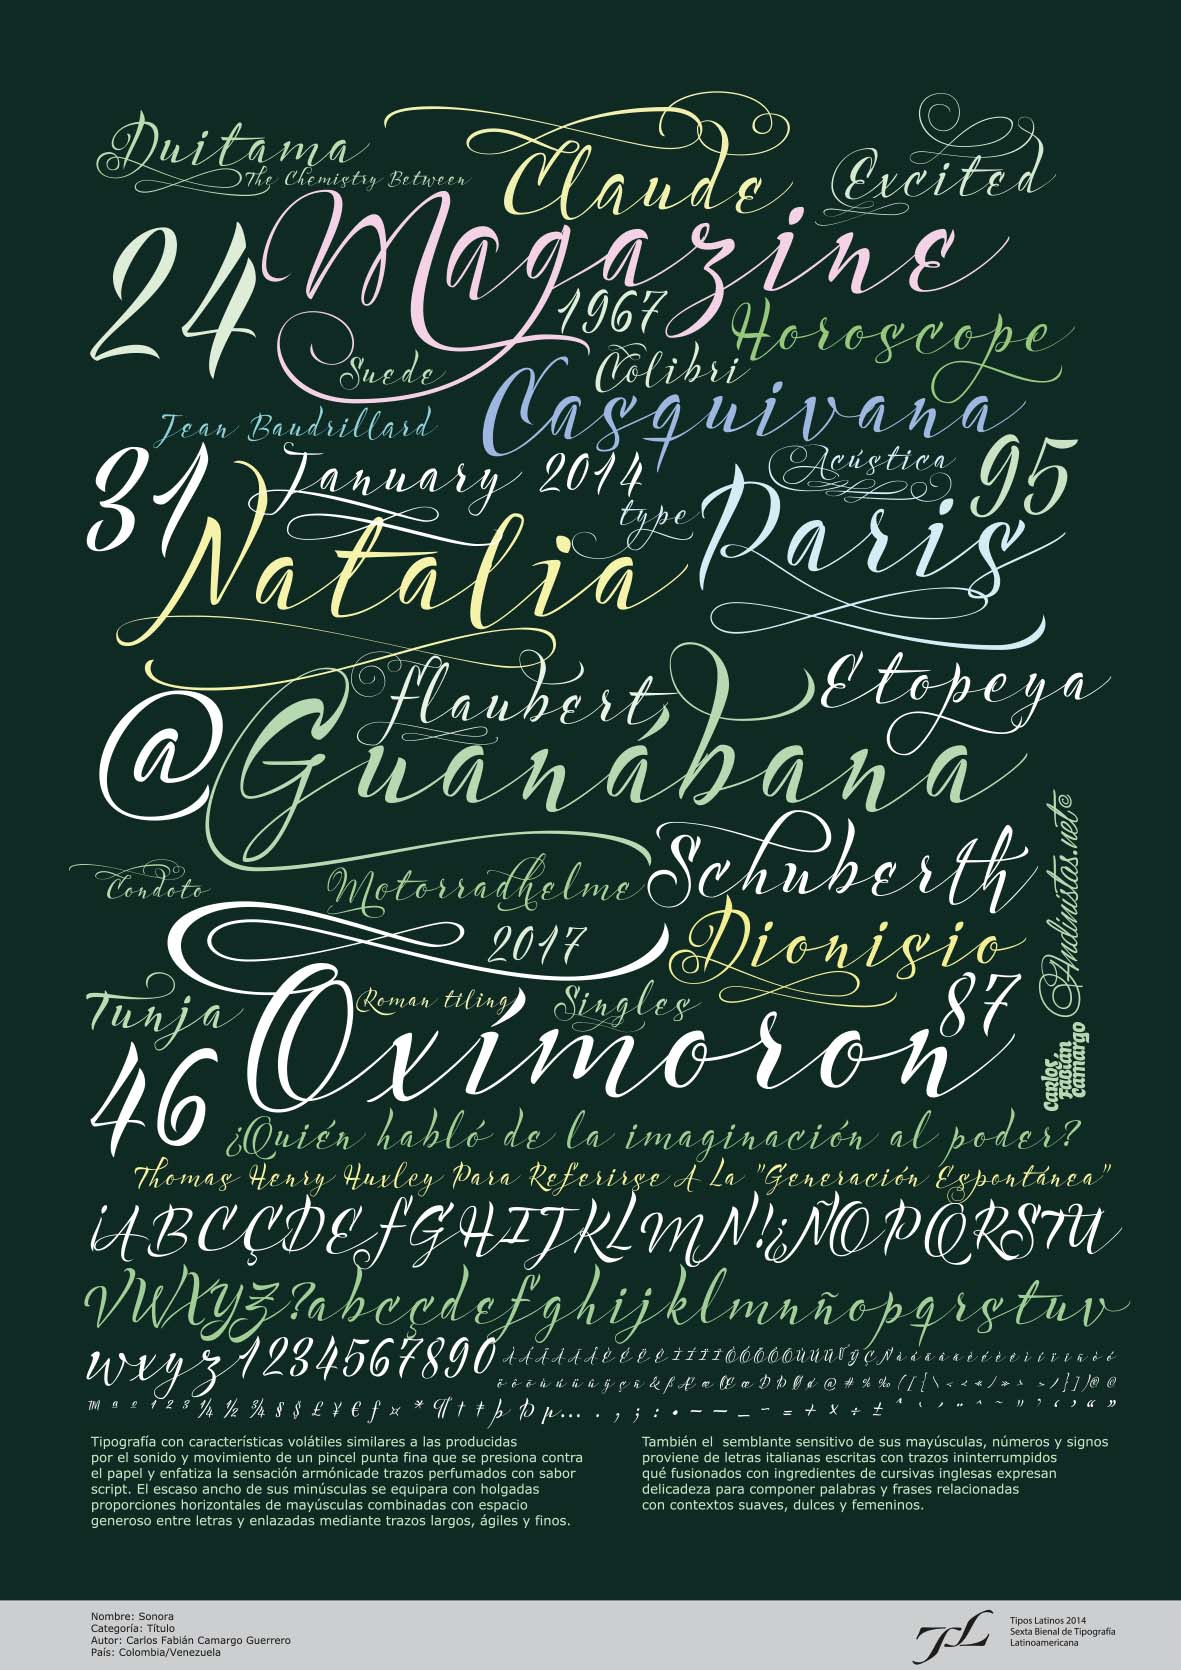 Duitama
The Chemistry Between
Claude
Excited
24
Magazine
1967
Horoscope
Suede
Colibri
Casquivana
Jean Baudrillard
31
January 2014
Acústica
95
type
Natalia
Paris
Flaubert
Etopeya
@
Guanábana
Schuberth
Condoto
Motorradhelme
2017
Dionisio
Andinistas.net©
Tunja
Roman tiling
Singles
87
Oxímoron
Carlos
Fabián
Camargo
46
¿Quién habló de la imaginación al poder?
Thomas Henry Huxley Para Referirse A La "Generación Espontánea"
¡ABCÇDEFGHIJKLMN!¿ÑOPQRSTU
VWXYZ?abcçdefghijklmnñopqrstuv
wxyz1234567890
Tipografía con características volátiles similares a las producidas
por el sonido y movimiento de un pincel punta fina que se presiona contra
el papel y enfatiza la sensación armónicade trazos perfumados con sabor
script. El escaso ancho de sus minúsculas se equipara con holgadas
proporciones horizontales de mayúsculas combinadas con espacio
generoso entre letras y enlazadas mediante trazos largos, ágiles y finos.
También el semblante sensitivo de sus mayúsculas, números y signos
proviene de letras italianas escritas con trazos ininterrumpidos
qué fusionados con ingredientes de cursivas inglesas expresan
delicadeza para componer palabras y frases relacionadas
con contextos suaves, dulces y femeninos.
Nombre: Sonora
Categoría: Título
Autor: Carlos Fabián Camargo Guerrero
País: Colombia/Venezuela
TL
Tipos Latinos 2014
Sexta Bienal de Tipografía
Latinoamericana